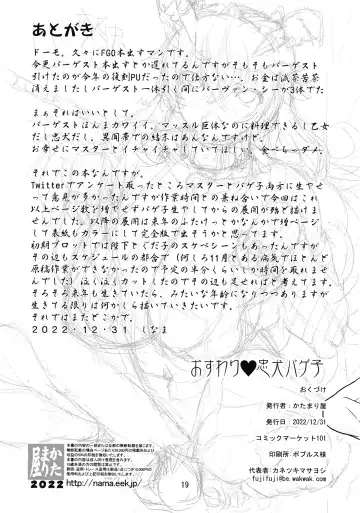 あとがき
ドーモ。久々にFGO本出すマンです。
今更バーゲスト本出すとか遅れてるんですがそもそもバーゲスト
引けたのが今年の復刻PUだったので仕方ない…。お金は滅茶苦茶
消えましたしバーゲスト一体引く間にバーヴァン・シーが3体でた
まぁそれはいいとして。
バーゲストほんまカワイイ。マッスル巨体なのに料理できるし乙女
だし忠犬だし。異聞帯での結末はあんなんですけど。
お幸せにマスターとイチャイチャしていてほしい。食べちゃダメ。
それでこの本なんですが。
Twitterでアンケート取ったところマスターとバゲ子両方に生やせ
って意見が多かったんですが作業時間との兼ね合いで今回はこれ
以上ページ数を増やせずバゲ子生やしてからの展開が殆ど描けま
せんでした。以降の展開は来年のふたけっとかなんかで増ページ
して表紙もカラーにして完全版で出そうかと思ってます。
初期プロットでは陛下とぐだ子のスケベシーンもあったんですが
その辺もスケジュールの都合で(何しろ11月とある病気でほとんど
原稿作業ができなかったので予定の半分くらいしか時間を取れませ
んでした)泣く泣くカットしたのでその辺も足せればと考えてます。
そろそろ来年も生きていたら、みたいな年齢になりつつありますが
生きていればまたどこかで。
2022・12・31　しなま
おすわり♥忠犬バゲ子
おくづけ
発行者：かたまり屋
発行日：2022/12/31
コミックマーケット101
印刷所：ポプルス様
代表者：カネツキマサヨシ
fujifuji@be.wakwak.com
かたまり屋
2022
http://nama.eek.jp/
19